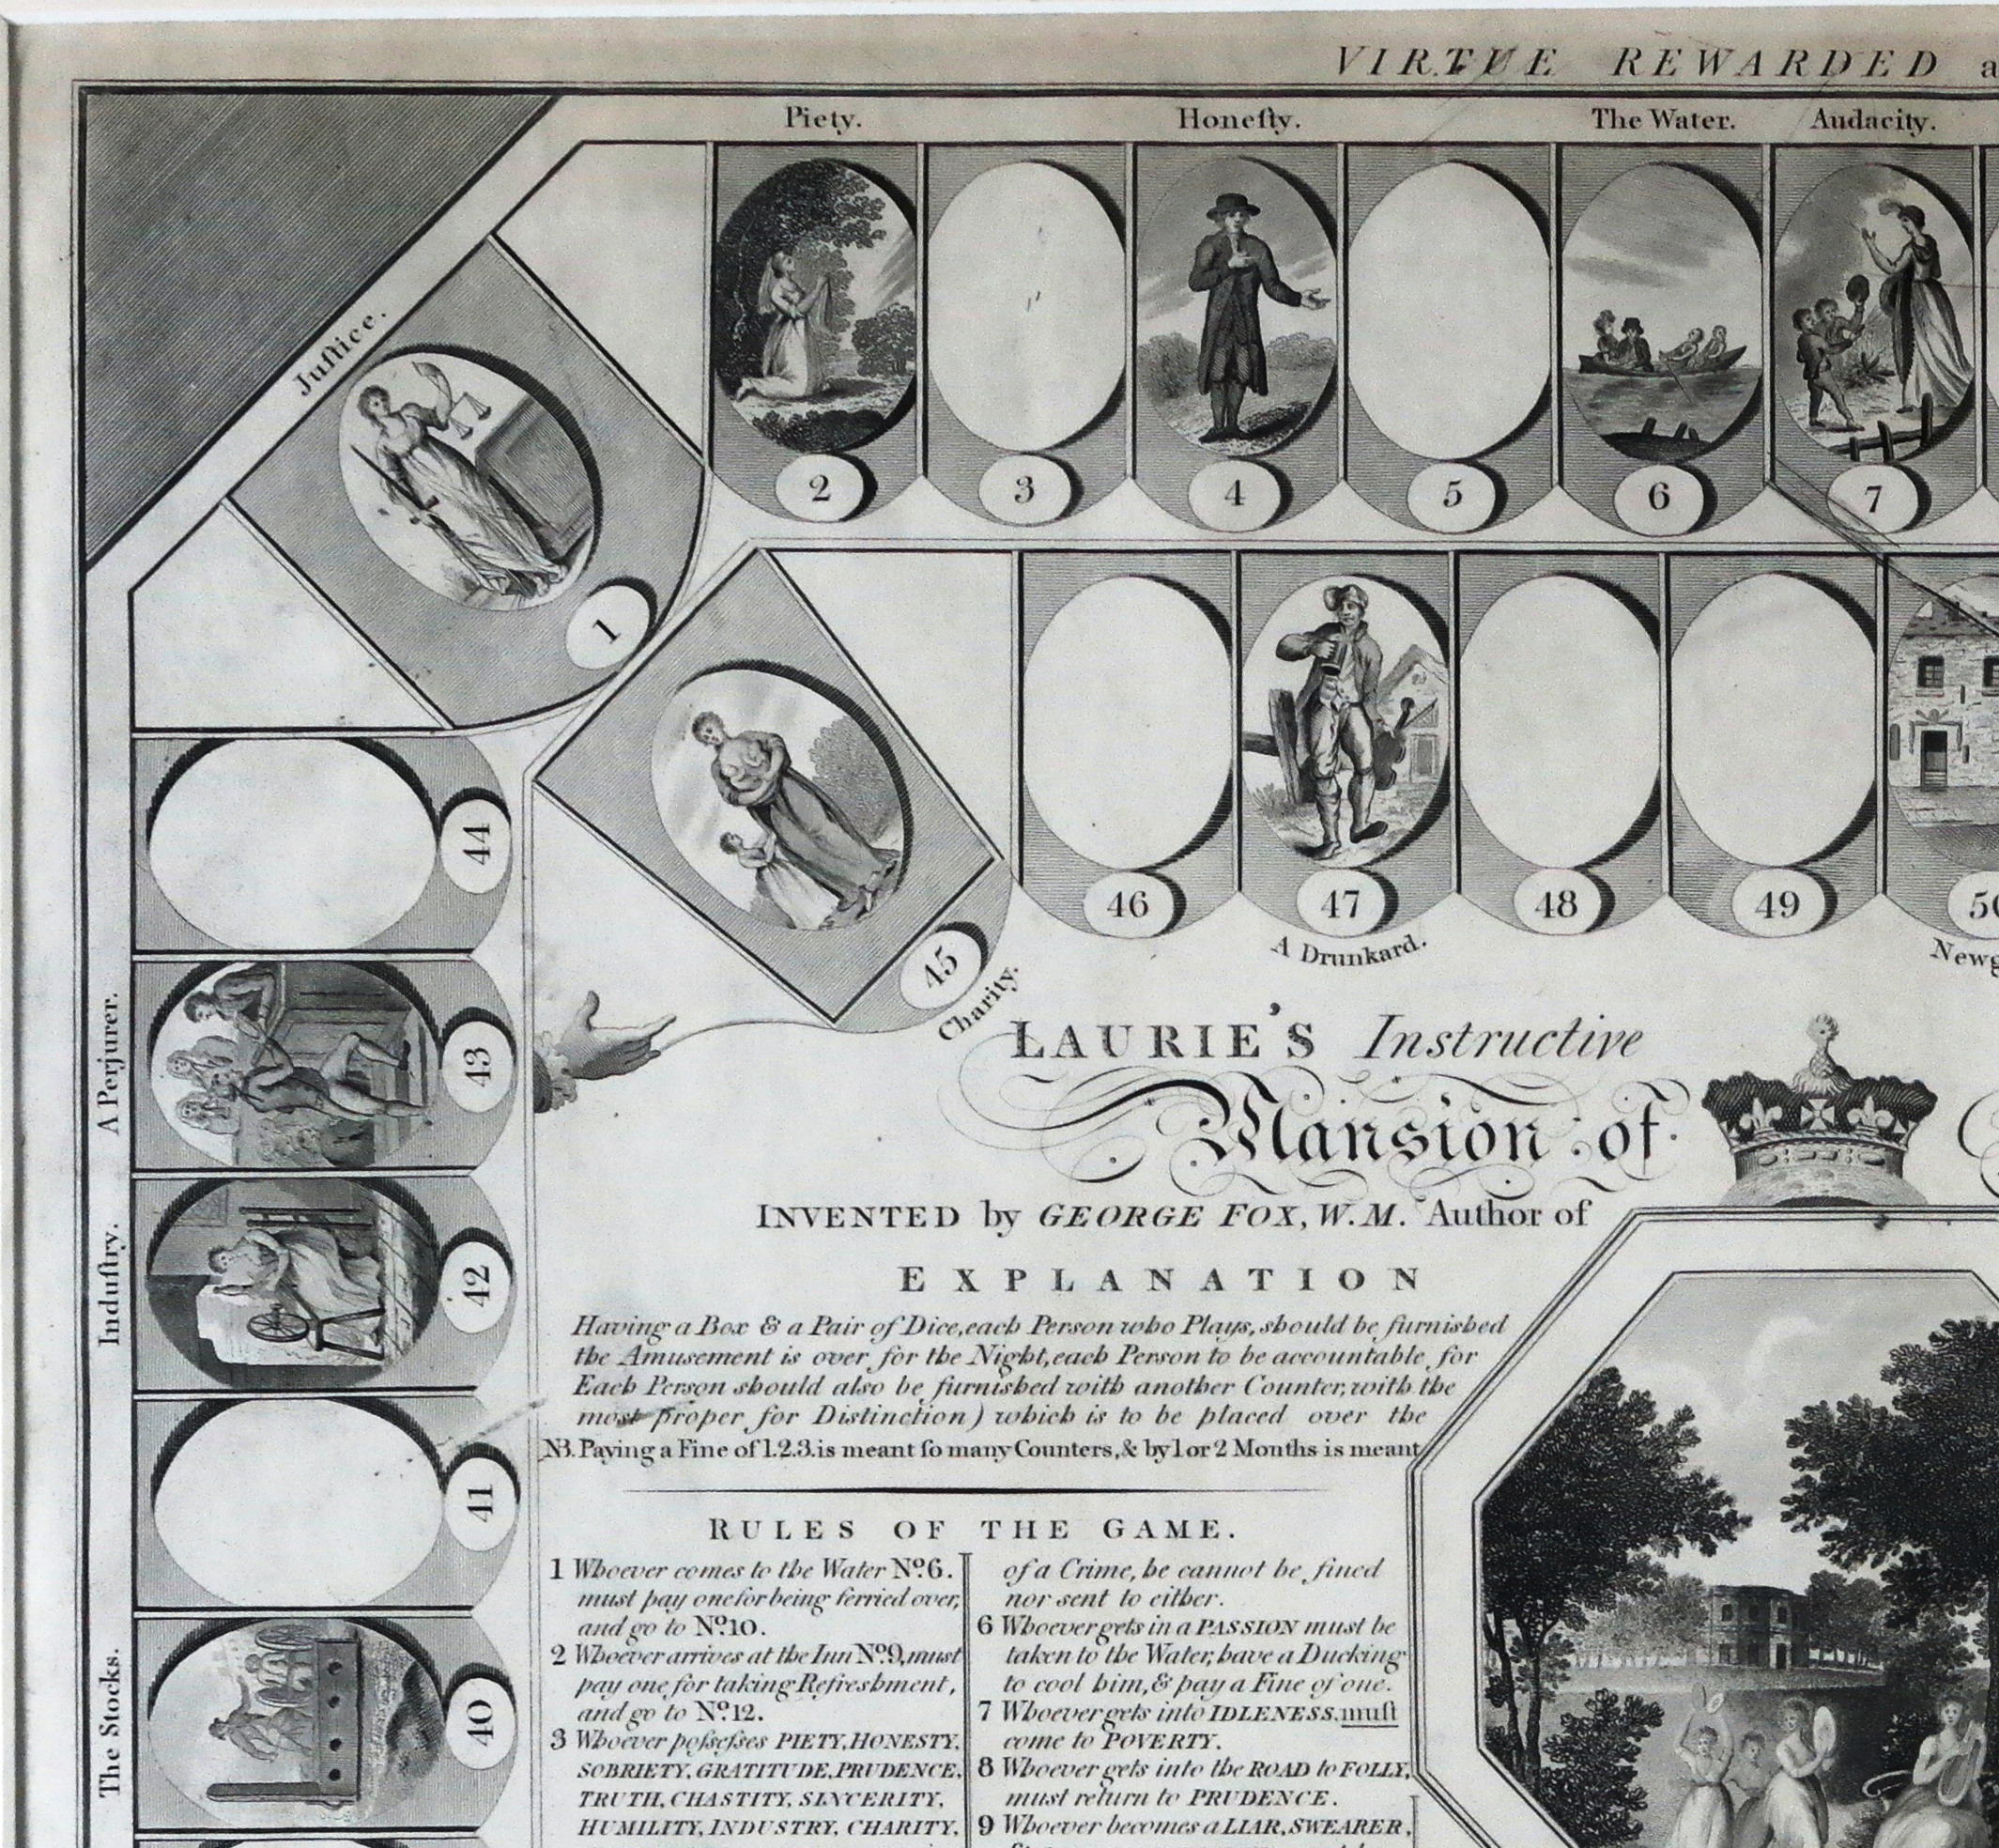 VIRTUE REWARDED a
Piety.
Honeſty.
The Water.
Audacity.
Juſtice.
1
2
3
4
5
6
7
44
A Perjurer.
43
Induſtry.
42
41
The Stocks.
40
45
Charity.
46
47
A Drunkard.
48
49
50
Newg
LAURIE'S Instructive
Mansion of
INVENTED by GEORGE FOX, W.M. Author of
EXPLANATION
Having a Box & a Pair of Dice, each Person who Plays, should be furnished
the Amusement is over for the Night, each Person to be accountable for
Each Person should also be furnished with another Counter, with the
most proper for Distinction) which is to be placed over the
NB. Paying a Fine of 1.2.3. is meant ſo many Counters, & by 1 or 2 Months is meant
RULES OF THE GAME.
1 Whoever comes to the Water Nº.6.
must pay one for being ferried over,
and go to Nº.10.
2 Whoever arrives at the Inn Nº.9, must
pay one for taking Refreshment,
and go to Nº.12.
3 Whoever poſseſses PIETY, HONESTY,
SOBRIETY, GRATITUDE, PRUDENCE,
TRUTH, CHASTITY, SINCERITY,
HUMILITY, INDUSTRY, CHARITY,
of a Crime, he cannot be fined
nor sent to either.
6 Whoever gets in a PASSION must be
taken to the Water, have a Ducking
to cool him, & pay a Fine of one.
7 Whoever gets into IDLENESS, muſt
come to POVERTY.
8 Whoever gets into the ROAD to FOLLY,
must return to PRUDENCE.
9 Whoever becomes a LIAR, SWEARER,